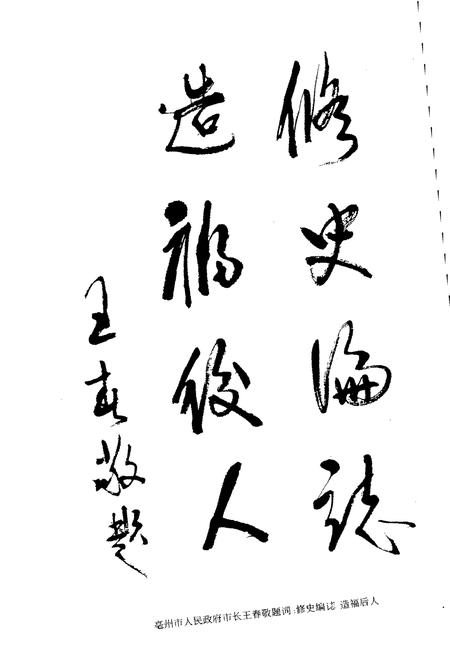 修史编誌
造福後人
王春敬题
亳州市人民政府市长王春敬题词:修史编誌 造福后人